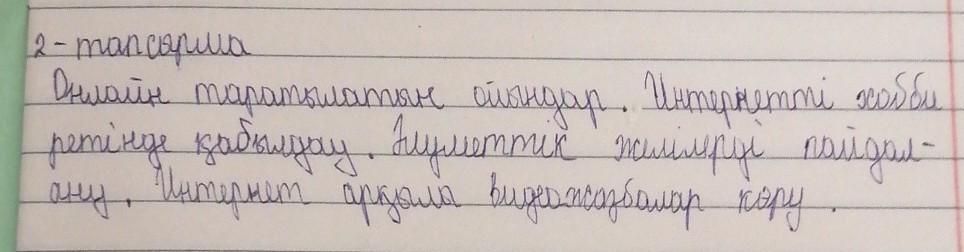 2-тапсырма
Онлайн таратылатын ойындар. Интернетті хобби
ретінде қабылдау. Әлуметтік желілерді пайдал-
ану. Интернет арқыла видеожазбалар көру.